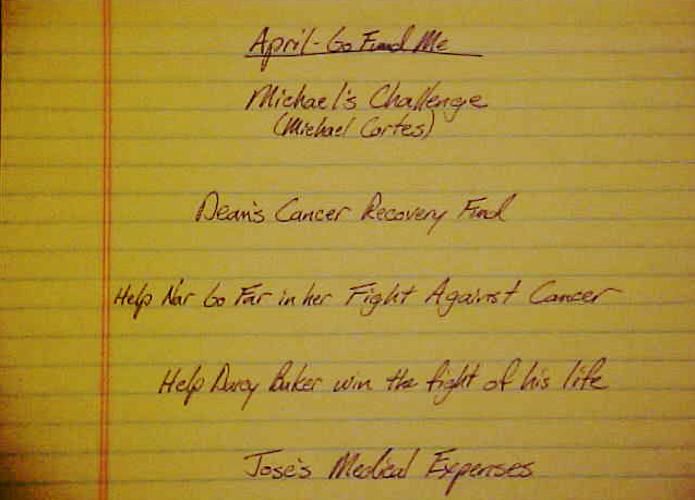 April - Go Fund Me
Michael's Challenge
(Michael Cortes)
Dean's Cancer Recovery Fund
Help Nar Go Far in her Fight Against Cancer
Help Darcy Baker win the fight of his life
Jose's Medical Expenses